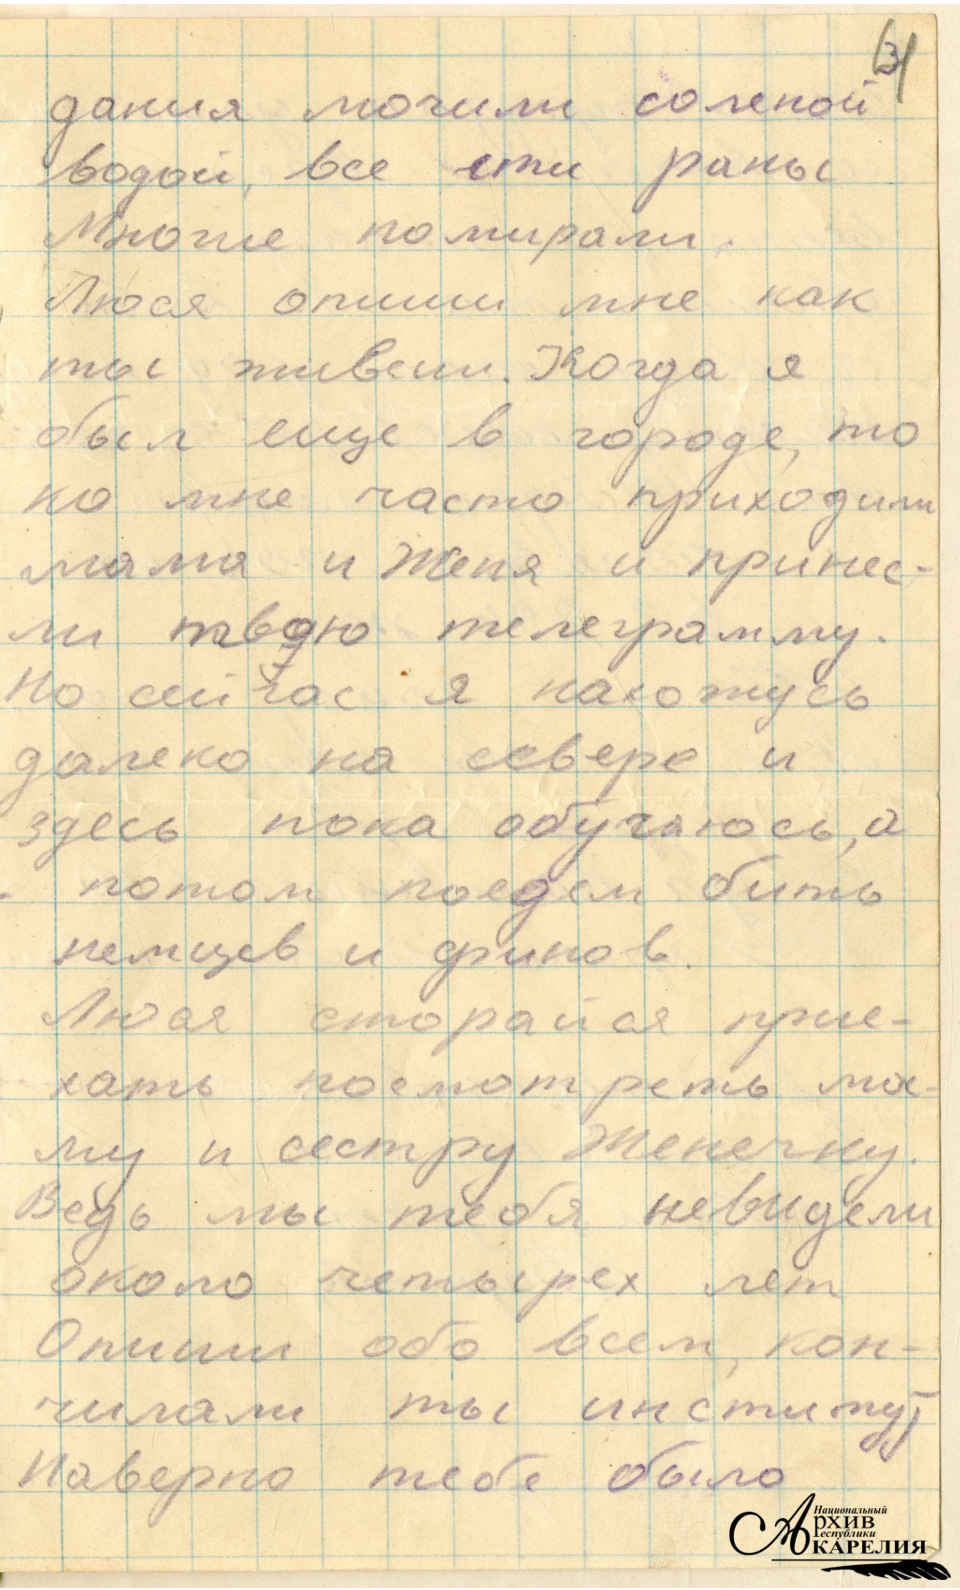 3
дания мочили соленой
водой, все эти раны
Многие помирали.
Люся опиши мне как
ты живеш. Когда я
был еще в городе, то
ко мне часто приходили
мама и Женя и принес-
ли твою телеграмму.
Но сейчас я нахожусь
далеко на севере и
здесь пока обучаюсь, а
потом поедем бить
немцев и финов.
Люся старайся прие-
хать посмотреть ма-
му и сестру Женечку.
Ведь мы тебя невидели
около четырех лет
Опиши обо всем, кон-
чилали ты институт
Наверно тебе было
Национальный
Архив
Республики
Карелия